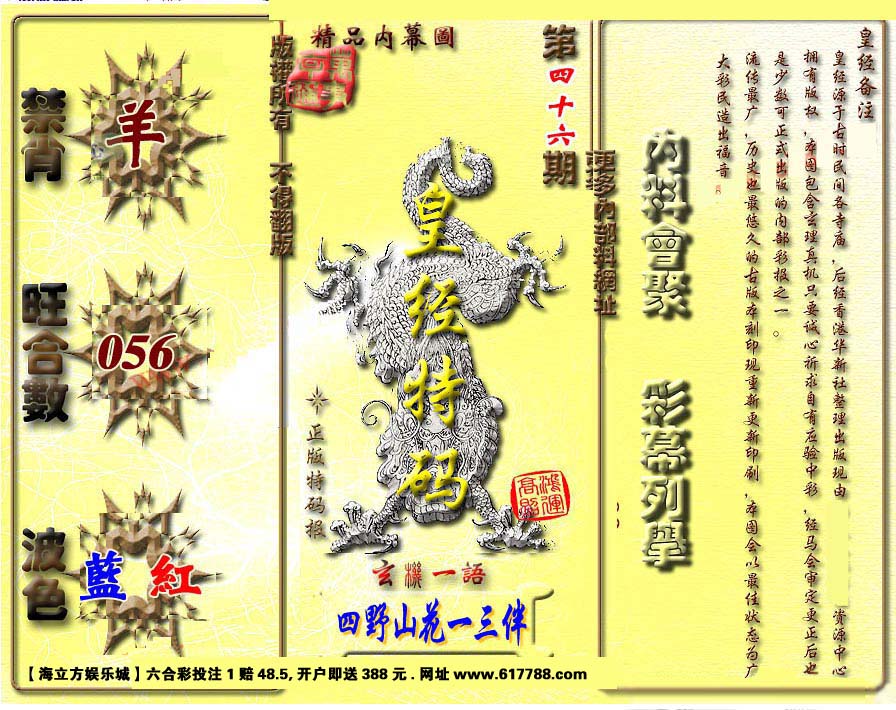 禁肖
羊
旺合數
056
波色
藍 紅
版權所有 不得翻版
精品内幕圖
第四十六期
更多內部料網址
皇经特码
正版特码报
鴻運高照
玄機一語
四野山花一三伴
内料會聚
彩幕列學
皇经备注
皇经源于古时民间各寺庙,后经香港华新社整理出版现由 资源中心
拥有版权,本图包含玄理真机只要诚心祈求自有应验中彩,经马会审定更正后也
是少数可正式出版的内部彩报之一。
流传最广,历史也最悠久的古版本刻印现重新更新印刷,本图会以最佳状态为广
大彩民造出福音
【海立方娱乐城】六合彩投注1赔48.5,开户即送388元.网址www.617788.com